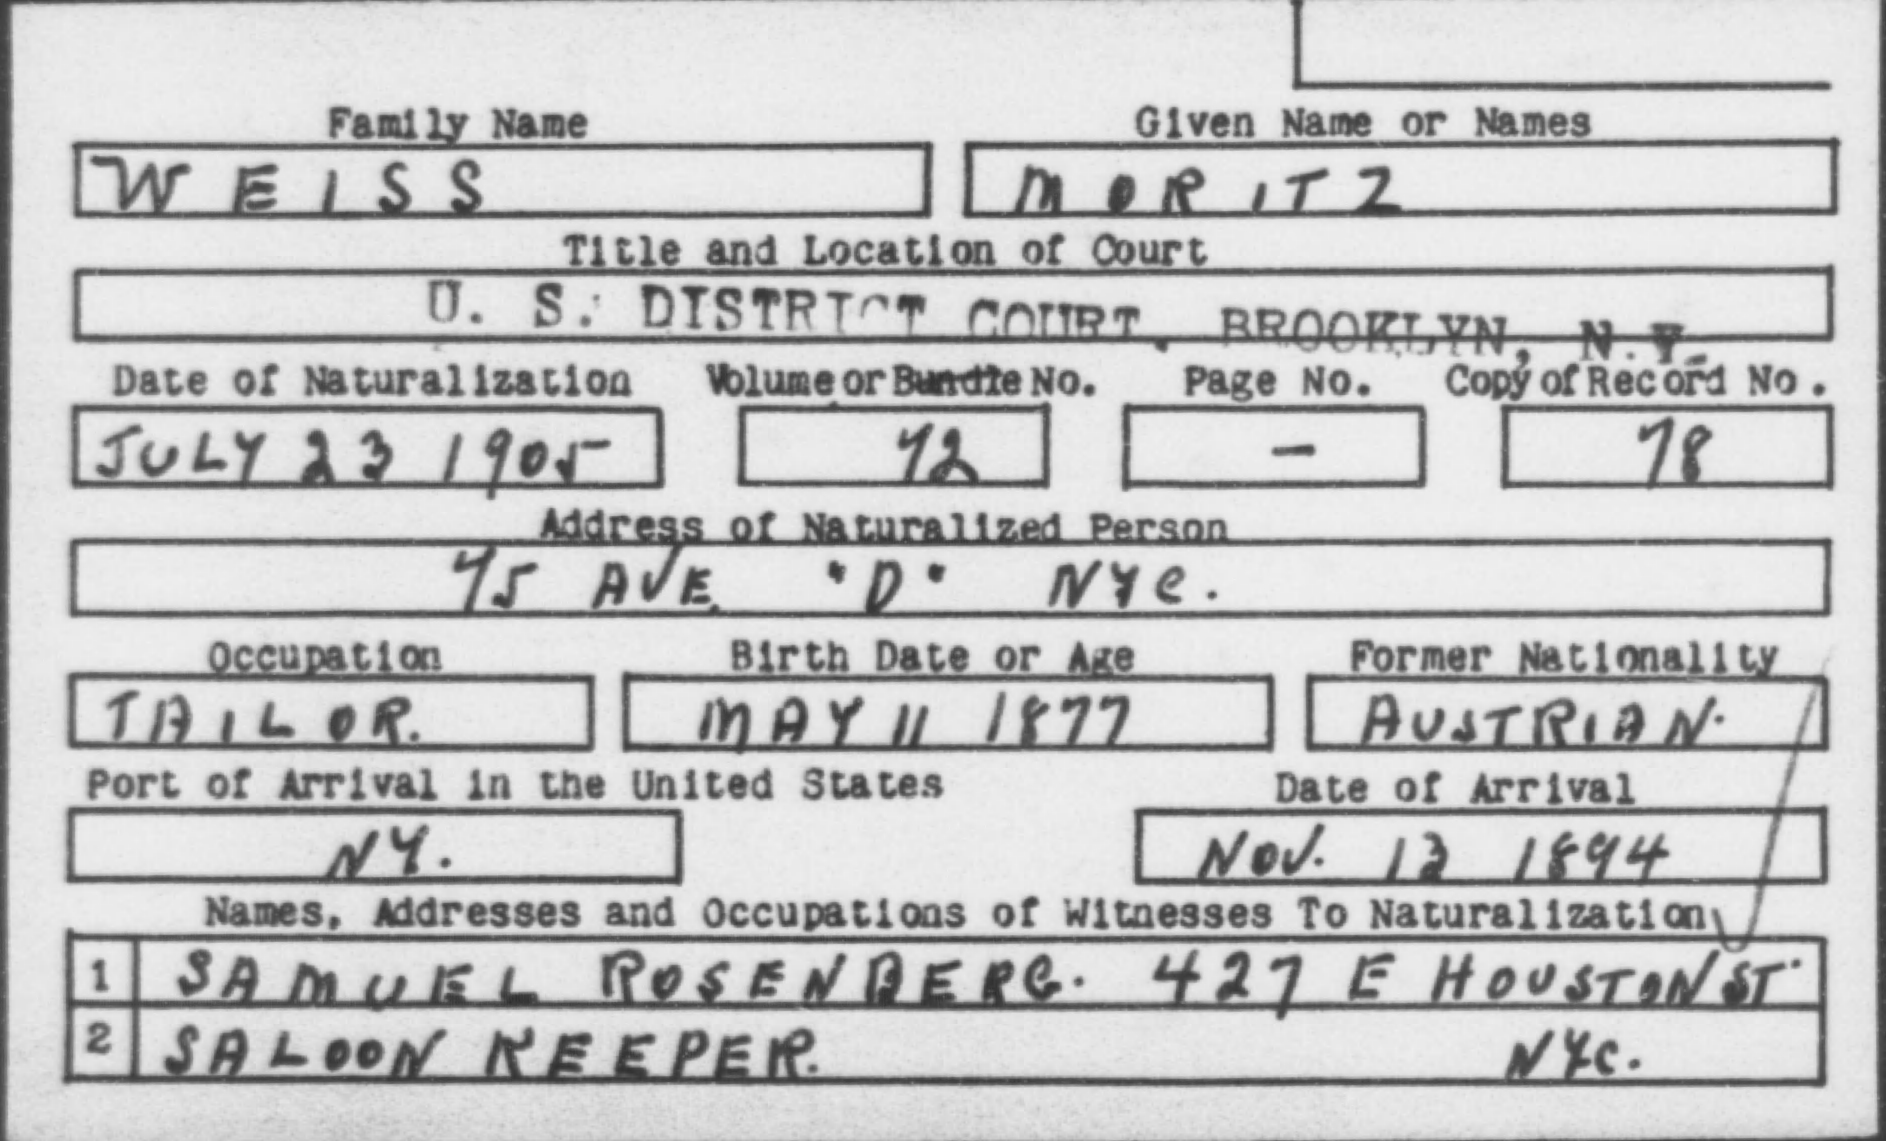 Family Name Given Name or Names
WEISS MORITZ
Title and Location of Court
U. S. DISTRICT COURT, BROOKLYN, N.Y.
Date of Naturalization Volume or Bundle No. Page No. Copy of Record No.
JULY 23 1905 72 - 78
Address of Naturalized Person
75 AVE. "D" NYC.
Occupation Birth Date or Age Former Nationality
TAILOR. MAY 11 1877 AUSTRIAN.
Port of Arrival in the United States Date of Arrival
NY. NOV. 12 1894
Names, Addresses and Occupations of Witnesses To Naturalization
1 SAMUEL ROSENBERG. 427 E HOUSTON ST.
2 SALOON KEEPER. NYC.